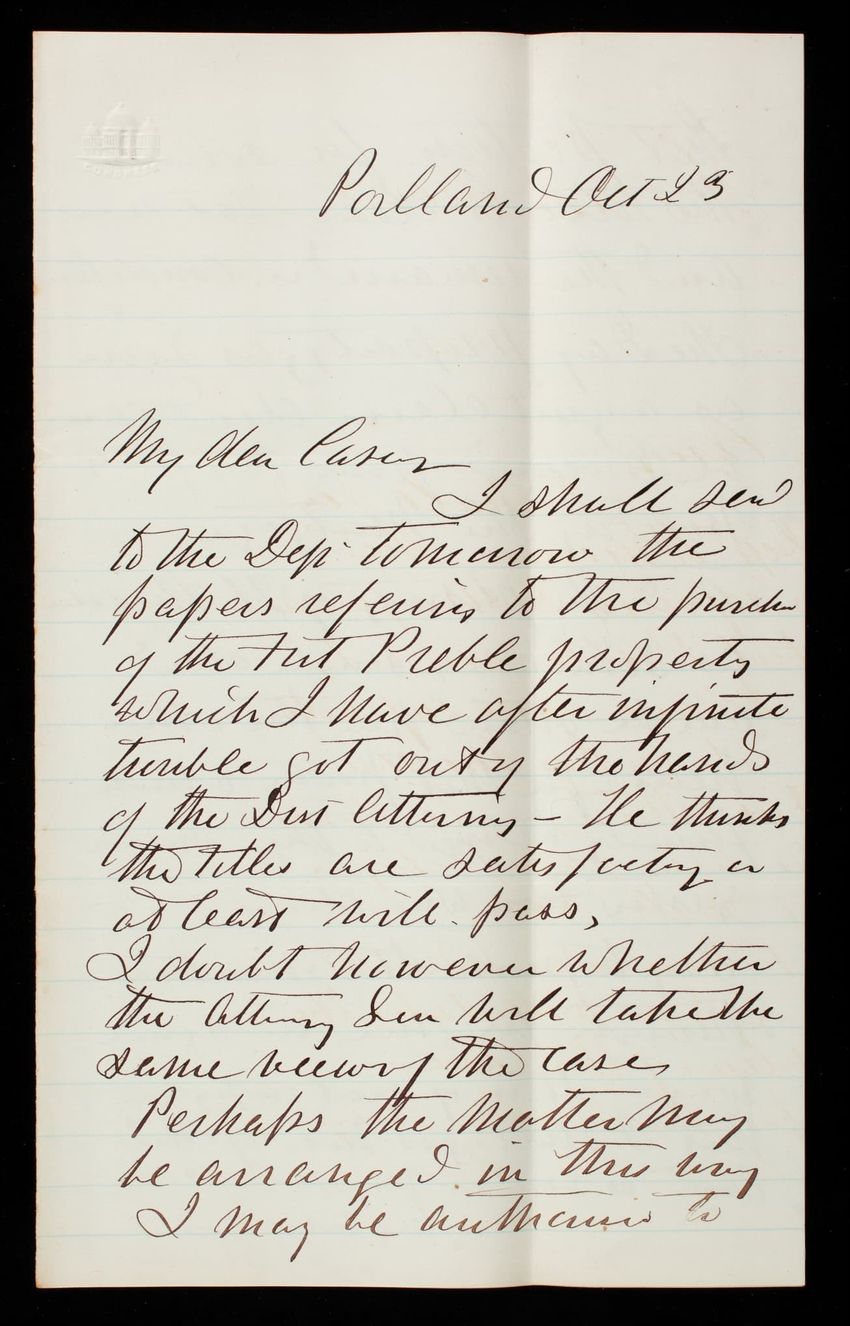 Portland Oct 23
My dear Casey
I shall send
to the Dep. tomorrow the
papers referring to the purchase
of the Fort Preble property
which I have after infinite
trouble got out of the hands
of the Dist Attorney – He thinks
the titles are satisfactory or
at least will pass,
I doubt however whether
the Attorney Gen will take the
same view of the case
Perhaps the matter may
be arranged in this way
I may be authorized to